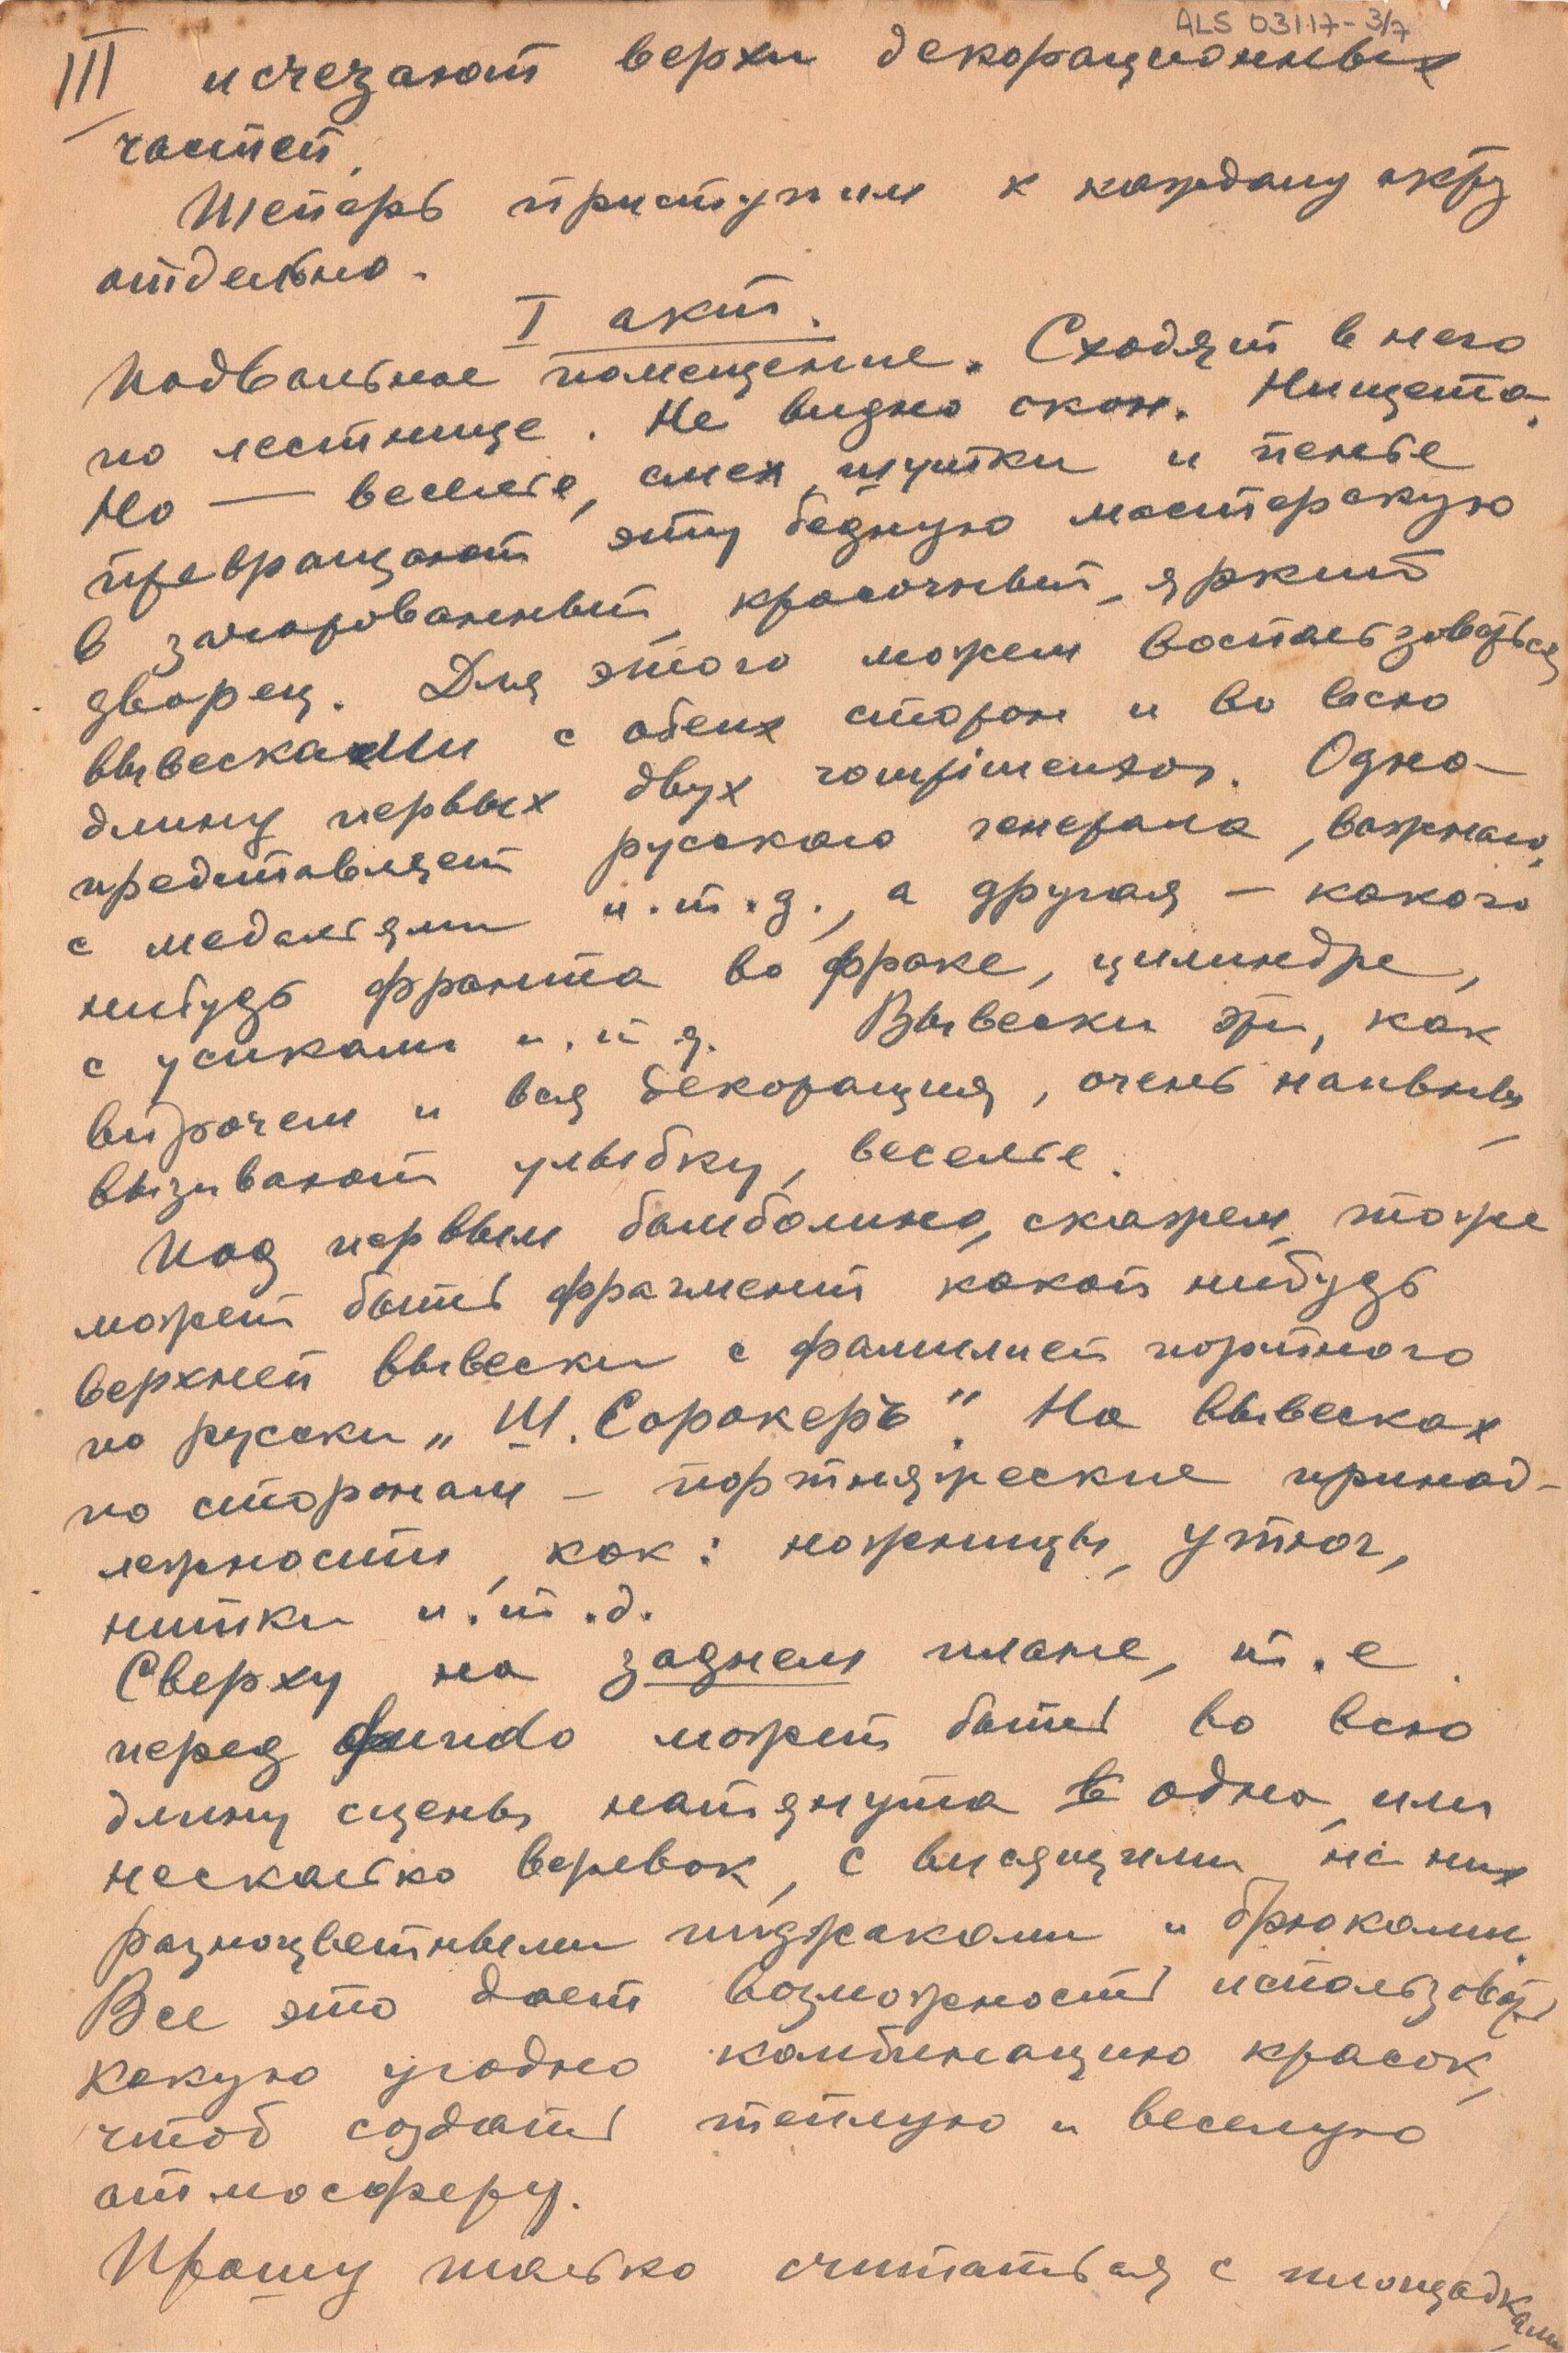 ALS 03117-3/7
III исчезают верхи декорационных
частей.
Теперь приступим к каждому акту
отдельно.
I акт.
Подвальное помещение. Сходят в него
по лестнице. Не видно окон. Нищета.
Но — веселье, смех, шутки и пенье
превращают эту бедную мастерскую
в зачарованный, красочный, яркий
дворец. Для этого можем воспользоваться
вывесками с обеих сторон и во всю
длину первых двух rompimentos. Одна
представляет русского генерала, важного,
с медалями и.т.д., а другая — какого
нибудь франта во фраке, цилиндре,
с усиками и.т.д. Вывески эти, как
впрочем и вся декорация, очень наивны,
вызывают улыбку, веселье.
Над первым бамболино, скажем, тоже
может быть фрагмент какой нибудь
верхней вывески с фамилией портного
по русски „Ш. Соракеръ". На вывесках
по сторонам — портняжеские принад-
лежности, как: ножницы, утюг,
нитки и.т.д.
Сверху на заднем плане, т.е.
перед fundo может быть во всю
длину сцены натянута одна, или
несколько веревок, с висящими на них
разноцветными пиджаками и брюками.
Все это дает возможность использовать
какую угодно комбинацию красок,
чтоб создать теплую и веселую
атмосферу.
Прошу только считаться с площадками,